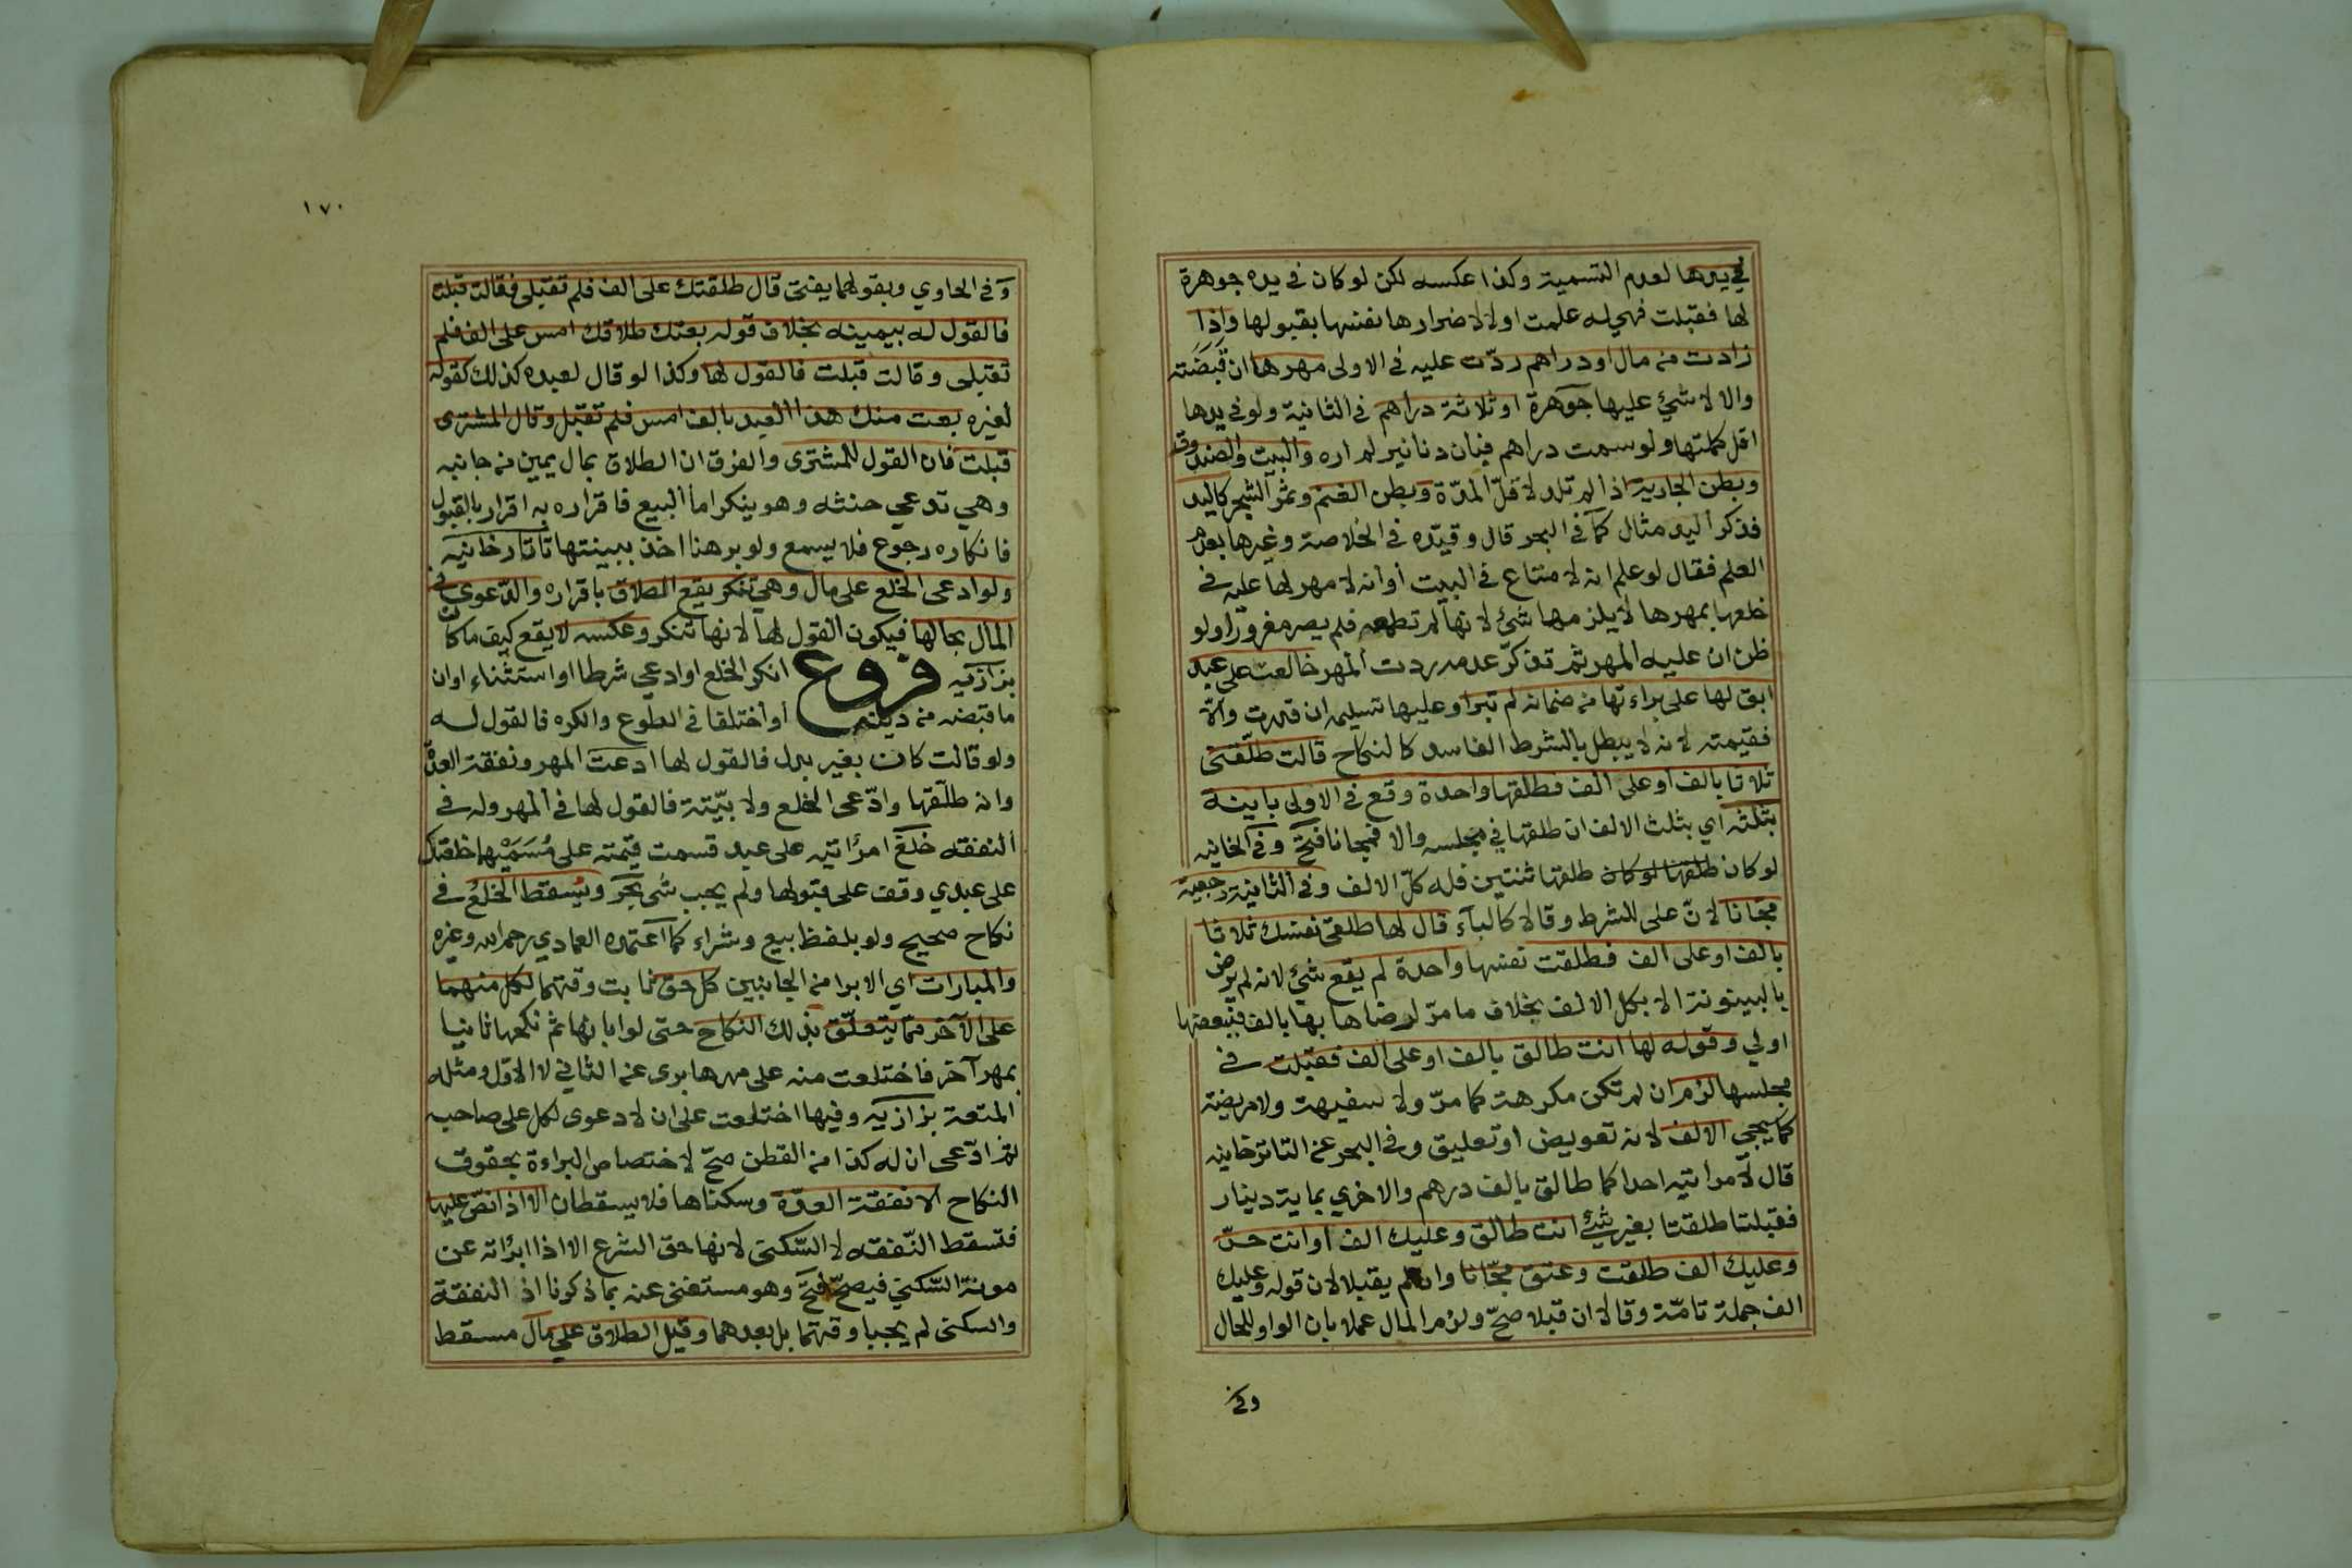 في يدها لعدم التسمية وكذا عكسه لكن لو كان في يده جوهرة
لها فقبلت فهي له علمت اولا لاضرارها نفسها بقبولها واذا
زادت من مال او دراهم ردّت عليه في الاولى مهرها ان قبضته
والا لا شيء عليها جوهرة او ثلاثة دراهم في الثانية ولو في يدها
اقل كملتها ولو سمت دراهم فبان دنانير لم اره والبيت والصندوق
وبطن الجارية اذا لم تلد لاقلّ المدّة وبطن الغنم وثمر الشجر كاليد
فذكر اليد مثال كما في البحر قال وقيّده في الخلاصة وغيرها بعدم
العلم فقال لو علم انه لا متاع في البيت أو أنه لا مهر لها عليه في
خلعها بمهرها لا يلزمها شئ لانها لم تطمعه فلم يصر مغرورا ولو
ظن ان عليه المهر ثم تذكّر عدمه ردت المهر خالعت على عبد
ابق لها على براءتها من ضمانه لم تبرا وعليها تسليمه ان قدرت والّا
فقيمته لانه لا يبطل بالشرط الفاسد كالنكاح قالت طلّقني
ثلاثا بالف او على الف فطلقها واحدة وقع في الاولى باينة
بثلثه اي بثلث الالف ان طلقها في مجلسه والا فمجانا فتح وفي الخانيه
لو كان طلقها لو كان طلقها ثنتين فله كلّ الالف وفي الثانية رجعية
مجّانا لانّ على للشرط وقالا كالبآء قال لها طلقي نفسك ثلاثا
بالف او على الف فطلقت نفسها واحدة لم يقع شئ لانه لم يرض
بالبينونة الا بكل الالف بخلاف ما مرّ لرضاها بها بالف فببعضها
اولي وقوله لها انت طالق بالف او على الف فقبلت في
مجلسها لزم ان لم تكن مكرهة كما مرّ ولا سفيهة ولا مريضة
كما يجي الالف لانه تعويض او تعليق وفي البحر عن التاترخانيه
قال لامراتيه احداكما طالق بالف درهم والاخري بماية دينار
فقبلتا طلقتا بغير شئ انت طالق وعليك الف او انت حرّ
وعليك الف طلقت وعتق مجّانا وان لم يقبلا لان قوله وعليك
الف جملة تامّة وقالا ان قبلا صحّ ولزم المال عملا بان الواو للحال
وفي
١٧٠
وفي الحاوي وبقولهما يفتى قال طلقتك على الف فلم تقبلي فقالت قبلت
فالقول له بيمينه بخلاف قوله بعتك طلاقك امس على الف فلم
تقبلي وقالت قبلت فالقول لها وكذا لو قال لعبده كذلك كقوله
لغيره بعت منك هذا العبد بالف امس فلم تقبل وقال المشترى
قبلت فان القول للمشترى والفرق ان الطلاق بمال يمين من جانبه
وهي تدعي حنثه وهو ينكر اما البيع فاقراره به اقرار بالقبول
فانكاره رجوع فلا يسمع ولو برهنا اخذ ببينتها تاتارخانيه
ولو ادعى الخلع على مال وهي تنكر يقع الطلاق باقراره والدّعوى في
المال بحالها فيكون القول لها لانها تنكر وعكسه لا يقع كيف ما كان
بزازيه فروع انكر الخلع او ادعي شرطا او استثناء او ان
ما قبضه من دينه أو أختلفا في الطوع والكره فالقول له
ولو قالت كان بغير بدل فالقول لها ادعت المهر ونفقة العدّة
وانه طلّقها وادّعى الخلع ولا بيّنة فالقول لها في المهر وله في
النفقه خلع امرأتيه على عبد قسمت قيمته على مسمّيهما خلعتك
على عبدي وقف على قبولها ولم يجب شي بحر ويسقط الخلع في
نكاح صحيح ولو بلفظ بيع وشراء كما أعتمده العمادي رحمه الله وغيره
والمبارات اي الابرا من الجانبين كل حق ثابت وقتهما لكل منهما
على الآخر ممّا يتعلّق بذلك النكاح حتى لو ابانها ثم نكحها ثانيا
بمهر آخر فاختلعت منه على مهرها برى عن الثاني لا الاوّل ومثله
المتعة بزازيه وفيها اختلعت على ان لا دعوى لكل على صاحبه
ثم ادّعى ان له كذا من القطن صحّ لاختصاص البراءة بحقوق
النكاح الا نفقة العدّة وسكناها فلا يسقطان الا اذا نصّ عليها
فتسقط النّفقه لا السّكنى لانها حق الشرع الا اذا ابرأته عن
مونة السّكني فيصحّ فتح وهو مستغنى عنه بما ذكرنا اذ النفقة
والسكنى لم يجبا وقتهما بل بعدهما وقيل الطلاق على مال مسقط